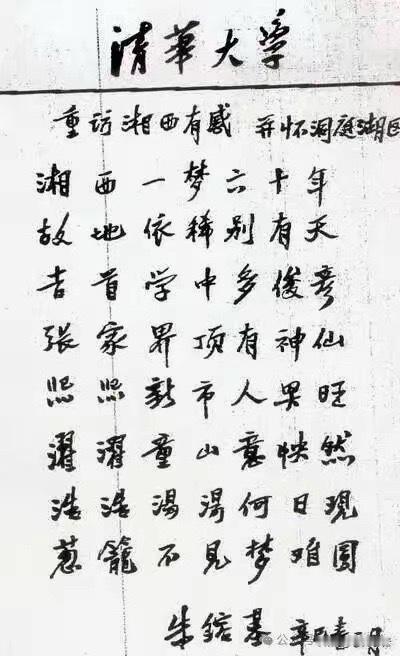 清華大学
重访湘西有感 并怀洞庭湖区
湘西一梦六十年
故地依稀别有天
吉首学中多俊彦
张家界顶有神仙
熙熙新市人畜旺
濯濯童山意怏然
浩浩汤汤何日现
葱茏不见梦难圆
朱鎔基